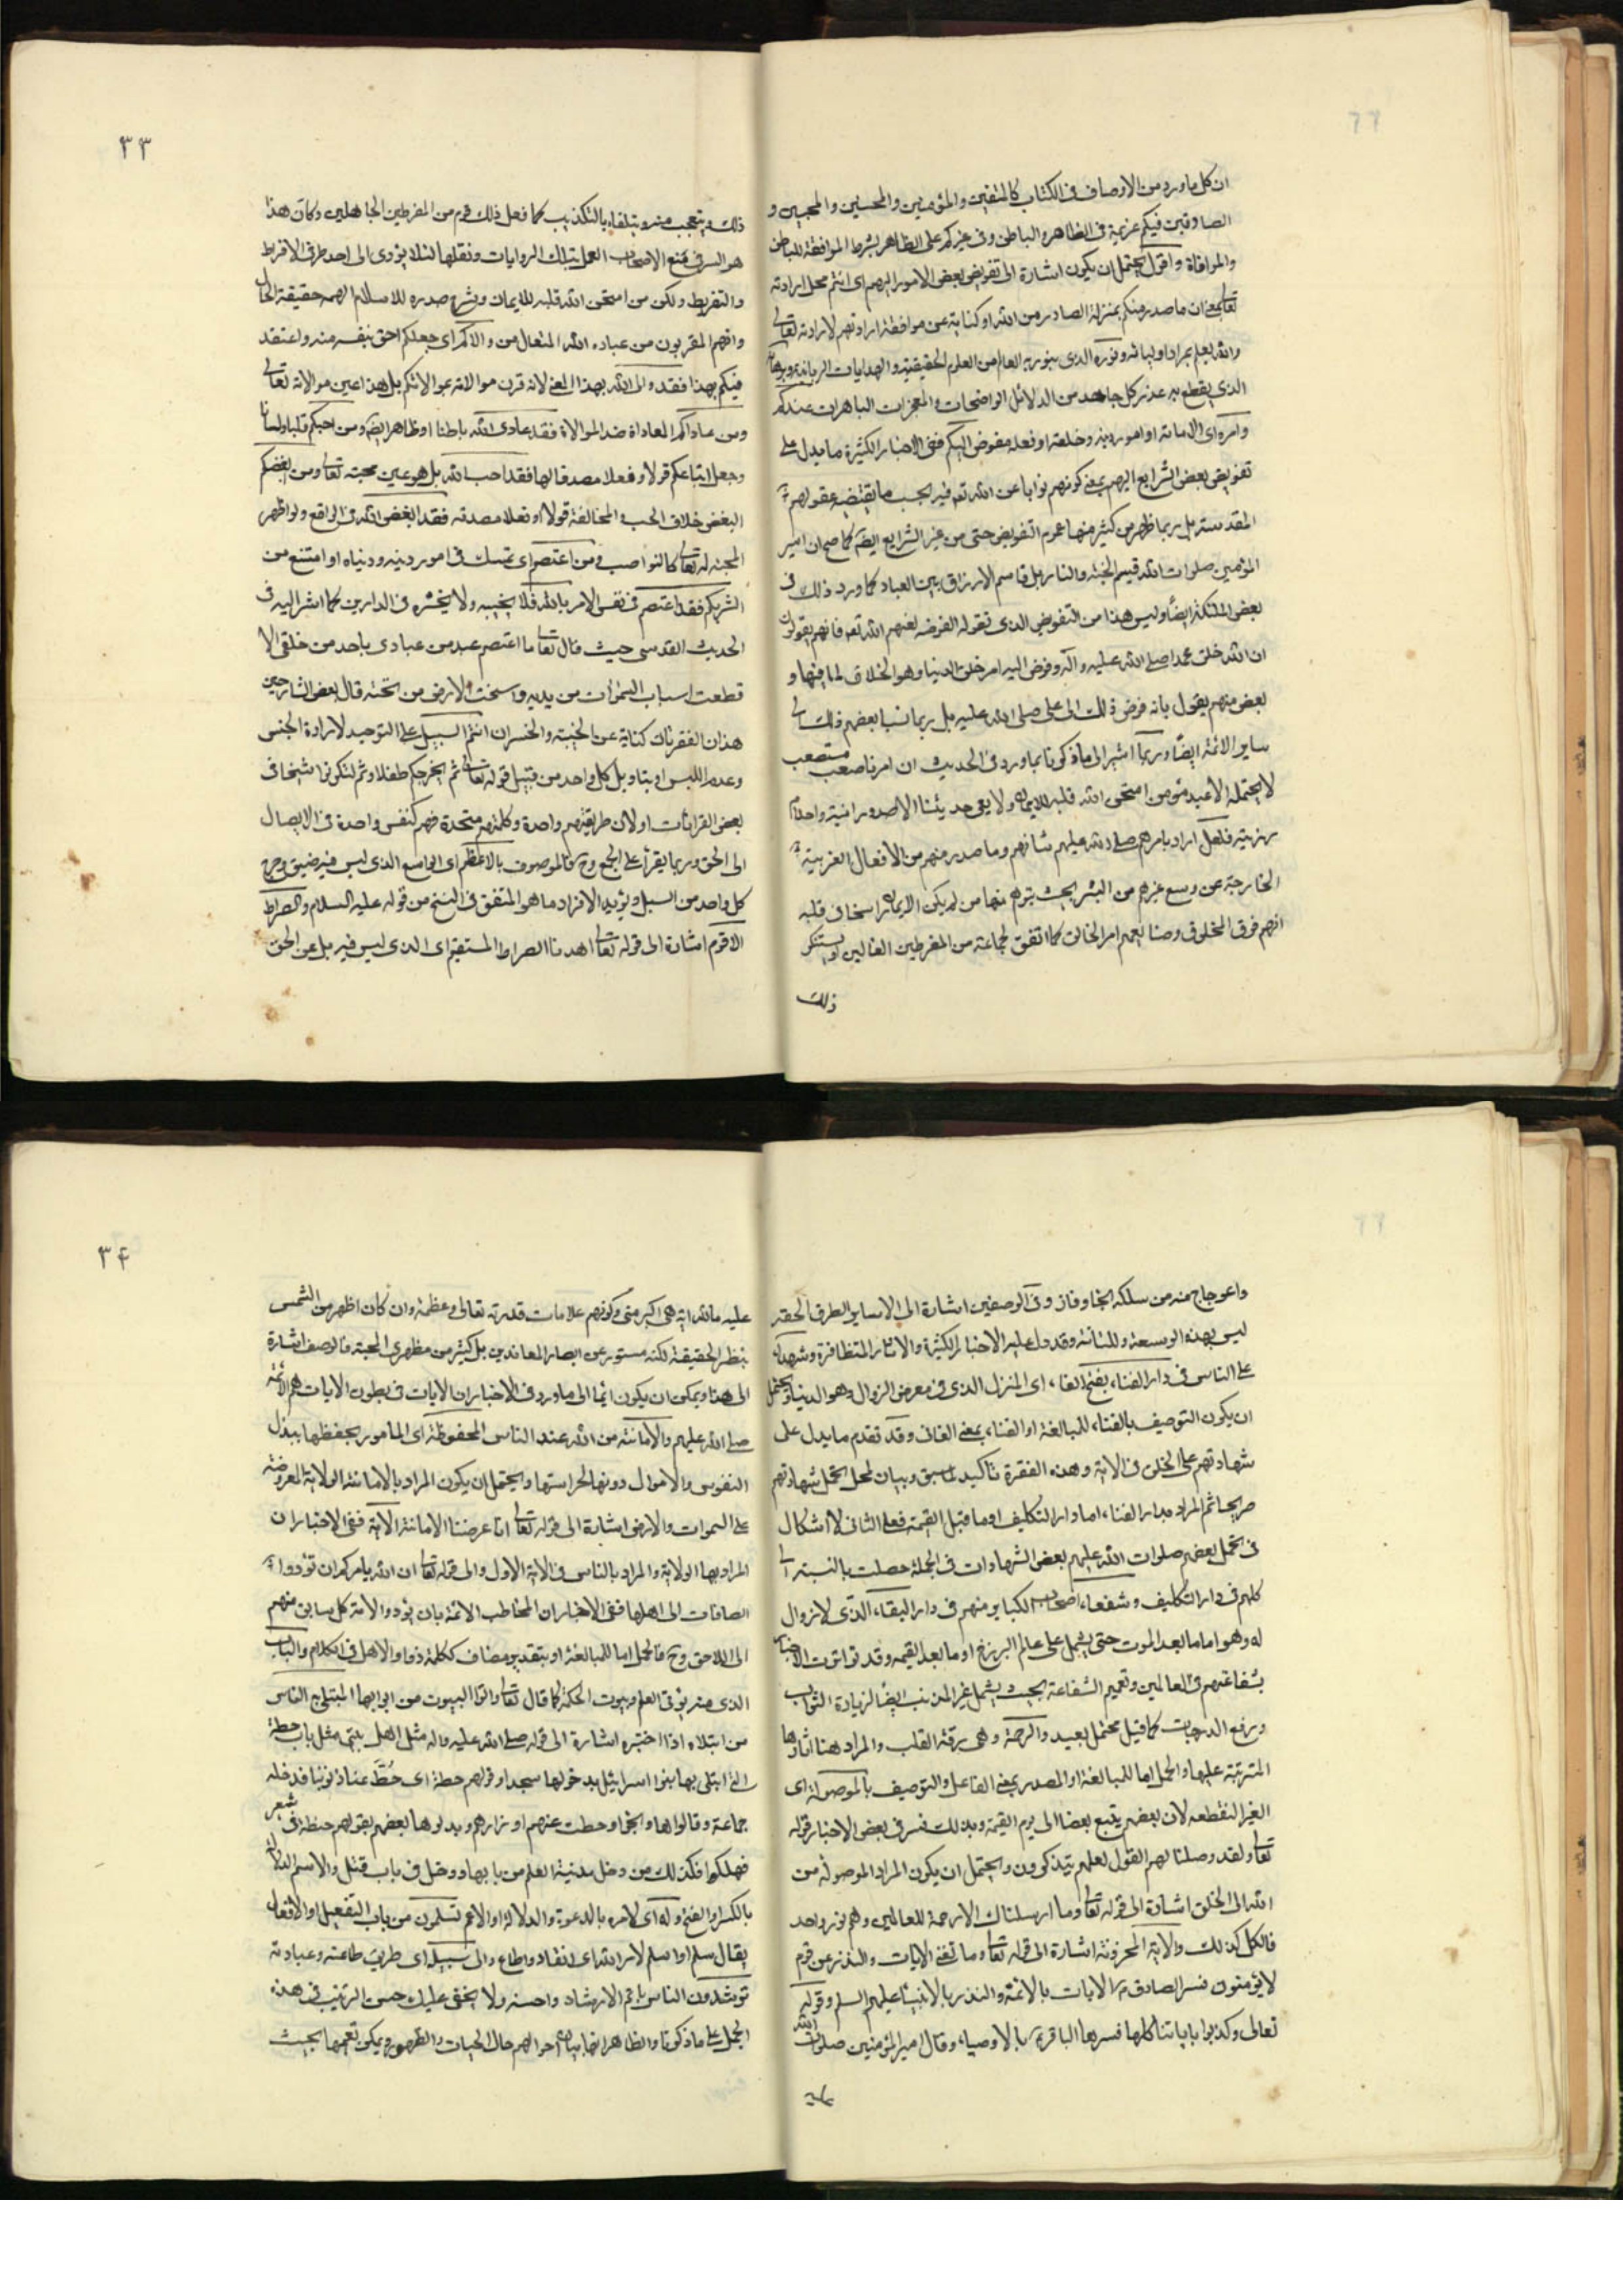 ان كل ما ورد من الاوصاف فى الكتاب كالمتقين والمؤمنين والمحسنين والمجيبين و
الصادقين فيكم عزيمة فى الظاهر والباطن وفى غيركم على الظاهر بشرط الموافقة للباطن
والموافاة واقول يحتمل ان يكون اشارة الى تفويض بعض الامور اليهم اى انتم محل ارادته
تعالى بمعنى ان ما صدر منكم بمنزلة الصادر من الله او كناية عن موافقة ارادتهم لارادته تعالى
والله يعلم بمراد اوليائه ونوره الذى ينور به العالم من العلوم الحقيقية والهدايات الربانية وبرهانه
الذى يقطع به عذر كل جاحد من الدلائل الواضحات والمعجزات الباهرات عندكم
وامره اى الامامة او امور دينه وخلقه او فعله مفوض اليكم ففى الاخبار الكثيرة ما يدل على
تفويض بعض الشرايع اليهم بمعنى كونهم نوابا عن الله تعم فيه بحسب ما يقتضيه عقولهم
المقدسة بل ربما ظهر من كثير منها عموم التفويض حتى من غير الشرايع ايضا كما صح ان امير
المؤمنين صلوات الله قسيم الجنة والنار بل قاسم الارزاق بين العباد كما ورد ذلك فى
بعض الملئكة ايضا وليس هذا من التفويض الذى تقوله المفوضة لعنهم الله تعم فانهم يقولون
ان الله خلق محمدا صلى الله عليه وآله وفوض اليه امر خلق الدنيا وهو الخلاق لما فيها و
بعض منهم يقول بانه فوض ذلك الى على صلى الله عليه بل ربما نسبا بعضهم ذلك الى
ساير الائمة ايضا وربما اشير الى ماذكرنا بما ورد فى الحديث ان امرنا صعب مستصعب
لا يحتمله الا عبد مؤمن امتحن الله قلبه للايمان ولا يعى حديثنا الا صدور امينة واحلام
رزينة فلعل اراد بامرهم صلى الله عليهم شانهم وما صدر منهم من الافعال الغريبة
الخارجة عن وسع غيرهم من البشر بحيث يتوهم منها من لم يكن الايمان راسخا فى قلبه
انهم فوق المخلوق وصنايعهم امر الخالق كما اتفق لجماعة من المفرطين الغالين او يستنكر
ذلك
٣٣
ذلك ويتعجب منه ويتلقاه بالتكذيب كما فعل ذلك قوم من المفرطين الجاهلين وكان هذا
هو السر فى منع الاصحاب العمل بتلك الروايات ونقلها لئلا يؤدى الى احد طرفى الافراط
والتفريط ولكن من امتحن الله قلبه للايمان وشرح صدره للاسلام الهمه حقيقة الحال
وافهم المقربون من عباده الله المتعال من والاكم اى جعلكم احق بنفسه منه واعتقد
فيكم بهذا فقد والى الله بهذا المعنى لانه قرن موالاته بموالاتكم بل هذا عين موالاته تعالى
ومن عاداكم المعاداة ضد الموالاة فقد عادى الله باطنا او ظاهرا ايضا ومن احبكم قلبا ولسانا
وجعل اتباعكم قولا وفعلا مصدقا لها فقد احب الله بل هو عين محبته تعالى ومن ابغضكم
البغض خلاف الحب والمخالفة قولا او فعلا مصدقه فقد ابغض الله فى الواقع ولو اظهر
المحبة له تعالى كالنواصب ومن اعتصم اى تمسك فى امور دينه ودنياه او امتنع من
الشر بكم فقد اعتصم فى نفس الامر بالله فلا يخيبه ولا يخسره فى الدارين كما اشير اليه فى
الحديث القدسى حيث قال تعالى ما اعتصم عبد من عبادى باحد من خلقى الا
قطعت اسباب السموات من يديه واسخت الارض من تحته قال بعض الشارحين
هذان الفقرتان كناية عن الخيبة والخسران انتم السبيل على التوحيد لارادة الجنس
وعدم اللبس او بتاويل كل واحد من قبيل قوله تعالى ثم يخرجكم طفلا وثم لتكونوا شيخا فى
بعض القراءات او لان طريقتهم واحدة وكلمتهم متحدة فهم كنفس واحدة فى الايصال
الى الحق وربما يقرأ على الجمع وح فالموصوف بالاعظم اى الواسع الذى ليس فيه ضيق وحرج
كل واحد من السبل ويؤيد الافراد ما هو المتفق فى النسخ من قوله عليه السلام والصراط
الاقوم اشارة الى قوله تعالى اهدنا الصراط المستقيم اى الذى ليس فيه ميل عن الحق
واعوجاج منه من سلكه نجا وفاز وفى الوصفين اشارة الى ان ساير الطرق الحقه
ليس بهذه الوسعة والمثابة وقد دل عليه الاخبار الكثيرة والاثار المتظافرة وشهداء
على الناس فى دار الفناء بفتح الفاء اى المنزل الذى فى معرض الزوال وهو الدنيا ويحتمل
ان يكون التوصيف بالفناء للمبالغة او الفناء بمعنى الفانى وقد تقدم ما يدل على
شهادتهم على الخلق فى الآية وهذه الفقرة تاكيد لما سبق وبيان لمحل تحمل شهادتهم
صريحا ثم المراد بدار الفناء اما دار التكليف او ما قبل القيمة فعلى الثانى لا اشكال
فى تحمل بعضهم صلوات الله عليهم بعض الشهادات فى الجملة حصلت بالنسبة الى
كلهم فى دار التكليف وشفعاء اصحاب الكباير منهم فى دار البقاء الذى لا زوال
له وهو اما ما بعد الموت حتى يشمل على عالم البرزخ او ما بعد القيمه وقد تواترت الاخبار
بشفاعتهم فى العالمين وتعميم الشفاعة بحيث يشمل غير المذنب ايضا لزيادة الثواب
ورفع الدرجات كما قيل محتمل بعيد والرحمة وهى رقة القلب والمراد هنا اثارها
المترتبة عليها والحمل اما للمبالغة او المصدر بمعنى الفاعل والتوصيف بالموصولة اى
الغير المنقطعه لان بعضهم يتبع بعضا الى يوم القيمة وبذلك فسر فى بعض الاخبار قوله
تعالى ولقد وصلنا لهم القول لعلهم يتذكرون ويحتمل ان يكون المراد الموصولة من
الله الى الخلق اشارة الى قوله تعالى وما ارسلناك الا رحمة للعالمين وهم نور واحد
فالكل كذلك والآية المخزونة اشارة الى قوله تعالى وما تغنى الايات والنذر عن قوم
لا يؤمنون فسر الصادق الايات بالائمة والنذر بالانبياء عليهم السلم وقوله
تعالى وكذبوا باياتنا كلها فسرها الباقر بالاوصياء وقال امير المؤمنين صلوات الله
عليه
٣٤
عليه ما لله اية هى اكبر منى وكونهم علامات قدرته تعالى وعظمته وان كان اظهر من الشمس
بنظر الحقيقة لكنه مستور عن ابصار المعاندين بل كثير من مظهرى المحبة فالوصف اشارة
الى هذا ويمكن ان يكون ايماء الى ما ورد فى الاخبار ان الايات فى بطون الايات هم الائمة
صلى الله عليهم والامانة من الله عند الناس المحفوظة اى المامور بحفظها ببذل
النفوس والاموال دونها لحراستها ويحتمل ان يكون المراد بالامانة الولاية المعروضة
على السموات والارض اشارة الى قوله تعالى انا عرضنا الامانة الآية ففى الاخبار ان
المراد بها الولاية والمراد بالناس فى الآية الاول والى قوله تعالى ان الله يامركم ان تؤدوا
الامانات الى اهلها ففى الاخبار ان المخاطب الائمة بان يؤدوا الامة كل سابق منهم
الى اللاحق وح فالحمل اما للمبالغة او بتقدير مضاف ككلمة ذو او الاهل فى الكلام والباب
الذى منه يؤتى العلم وبيوت الحكمة كما قال تعالى واتوا البيوت من ابوابها المبتلى به الناس
من ابتلاه اذا اختبره اشارة الى قوله صلى الله عليه واله مثل اهل بيتى مثل باب حطة
التى ابتلى بها بنوا اسرائيل بدخولها سجدا وقولهم حطة اى حُطّ عنا ذنوبنا فدخله
جماعة وقالوا ها وانجوا وحطت عنهم اوزارهم وبدلوها بعضهم بقولهم حنطة فى شعر
فهلكوا فكذلك من دخل مدينة العلم من بابها ودخل فى باب قتل والاسم الدلالة
بالكسر او الفتح وله اى لامره بالدعوة والدلالة او الاعم تسلمون من باب التفعيل او الافعال
يقال سلم او اسلم لامر الله اى انقاد واطاع والى سبيله اى طريق طاعته وعبادته
ترشدون الناس باعم الارشاد واحسنه ولا يخفى عليك حسن الترتيب فى هذه
الجمل على ما ذكرنا والظاهر انها بيان احوالهم حال الحيات والظهور ويمكن تعميمها بحيث